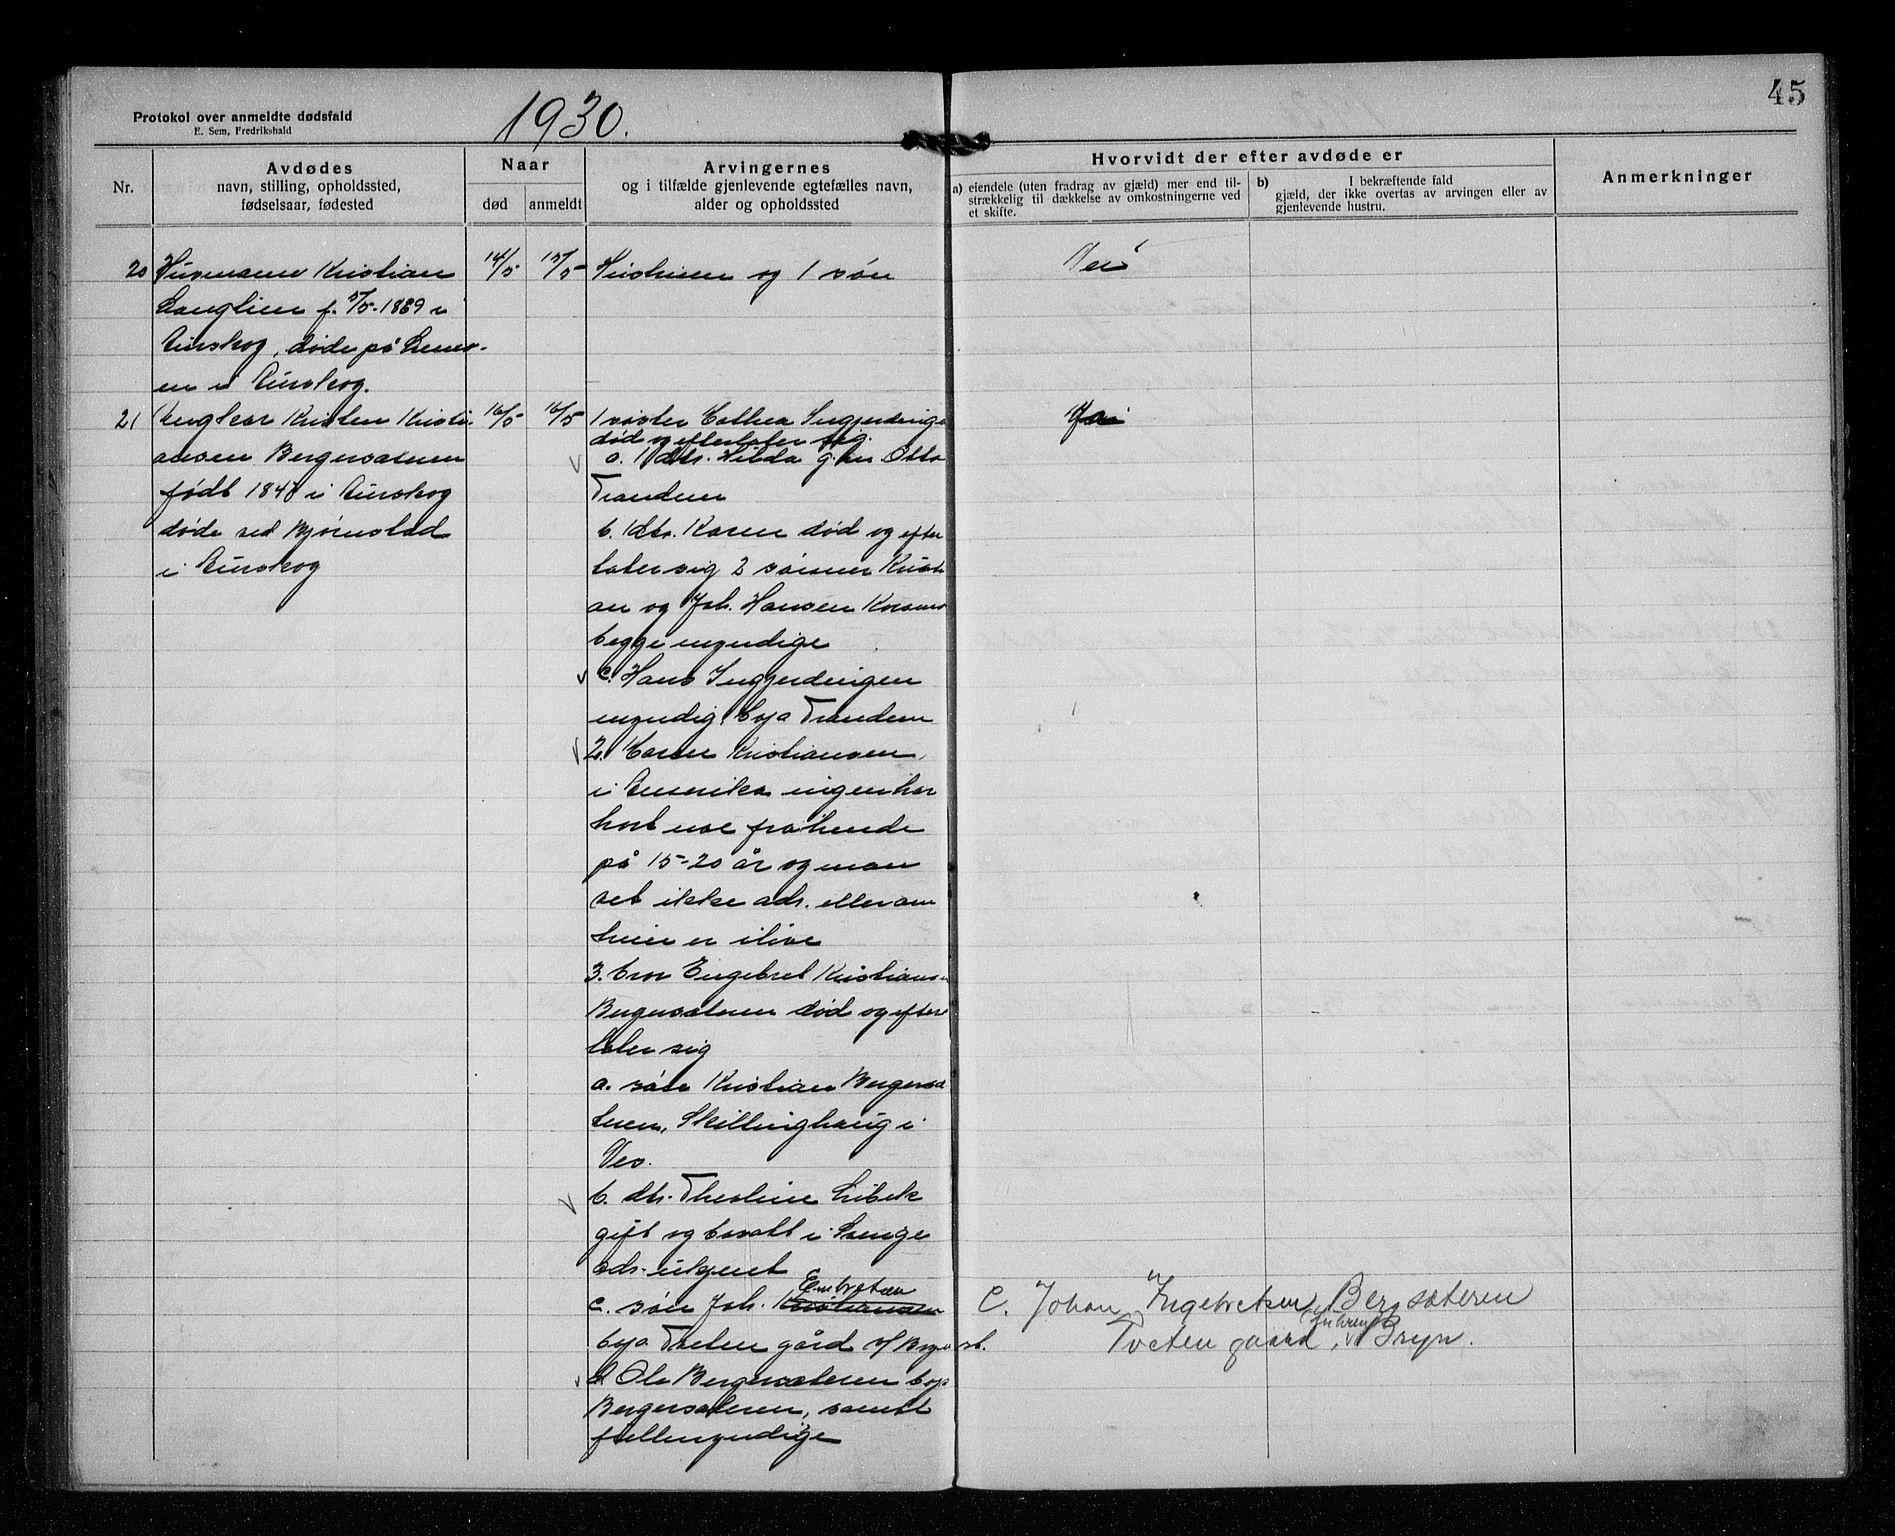 45
Protokol over anmeldte dødsfald
E. Sem, Fredrikshald
1930.
Nr.
Avdødes
navn, stilling, opholdssted,
fødselsaar, fødested
Naar
død
anmeldt
Arvingernes
og i tilfælde gjenlevende egtefælles navn,
alder og opholdssted
Hvorvidt der efter avdøde er
a) eiendele (uten fradrag av gjæld) mer end til-
strækkelig til dækkelse av omkostningerne ved
et skifte.
b) I bekræftende fald
gjæld, der ikke overtas av arvingen eller av
gjenlevende hustru.
Anmerkninger
20 Husmann Kristian
Langlien f. 5/5-1869 i
Aurskog, døde på
en i Aurskog.
14/5
15/5
og 1 søn
Nei
21 Ungkar Kristen Kristi-
ansen Bergersæteren
født i Aurskog
døde ved Bjørnstad
i Aurskog
16/5
16/5
1 søster Ingjerdinge
død og efterlater sig.
a. 1 dtr. Hilda g. m. Otto
Trandem
b. 1 dtr. Karen død og efter
later sig 2 sønner Kristi
an og Joh. Hansen
begge myndige
c. Hans Ingjerdingen
myndig, bopæl Trandem
2. Karen Kristiansen,
i Amerika ingen har
hørt noe fra hende
på 15-20 år og man
vet ikke adr. eller om
hun er ilive
3. bror Engebret Kristians-
Bergersæteren død og efter
later sig
a. søn Kristian Bergersæ
teren, Skillinghaug i
Nes.
b. dtr. Theoline Libek
gift og bosatt i Sverige
adr. ukjent
c. søn Joh. Kristiansen
Embretsen
Tveten gård
d. Ole Bergersæteren bop.
Bergersæteren, samtl
fuldmyndige
Ja
C. Johan Ingebretsen Bergsæteren
Tveten gaard, Bryn.